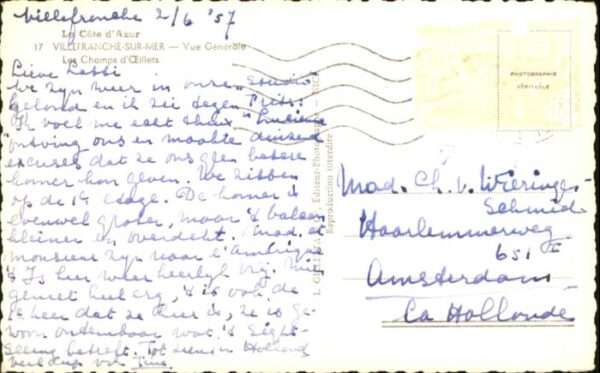 Villefranche 2/6 '57
La Côte d'Azur
17 VILLEFRANCHE-SUR-MER — Vue Générale
Les Champs d'Œillets
Lieve
We zijn weer in onze Studio
beland en ik zei tegen Frits:
Ik voel me echt "Lucienne
ontving ons en maakte duizend
excuses dat ze ons geen betere
kamer kon geven. We zitten
op de 1e etage. De kamer is
evenwel groter, maar 't balcon
kleiner en overdekt. Mad. et
monsieur zijn naar l'Amérique
's Is hier weer heerlijk
geniet heel erg, 't is ook de
keer dat ze hier is, ze is ge-
woon wat 't Sight-
Seeing betreft. Tot ziens in Holland
Editeur
Reproduction interdite
PHOTOGRAPHIE
Mad. Ch. v. Wieringen-
Schmid
Haarlemmerweg
651 II
Amsterdam
La Hollande